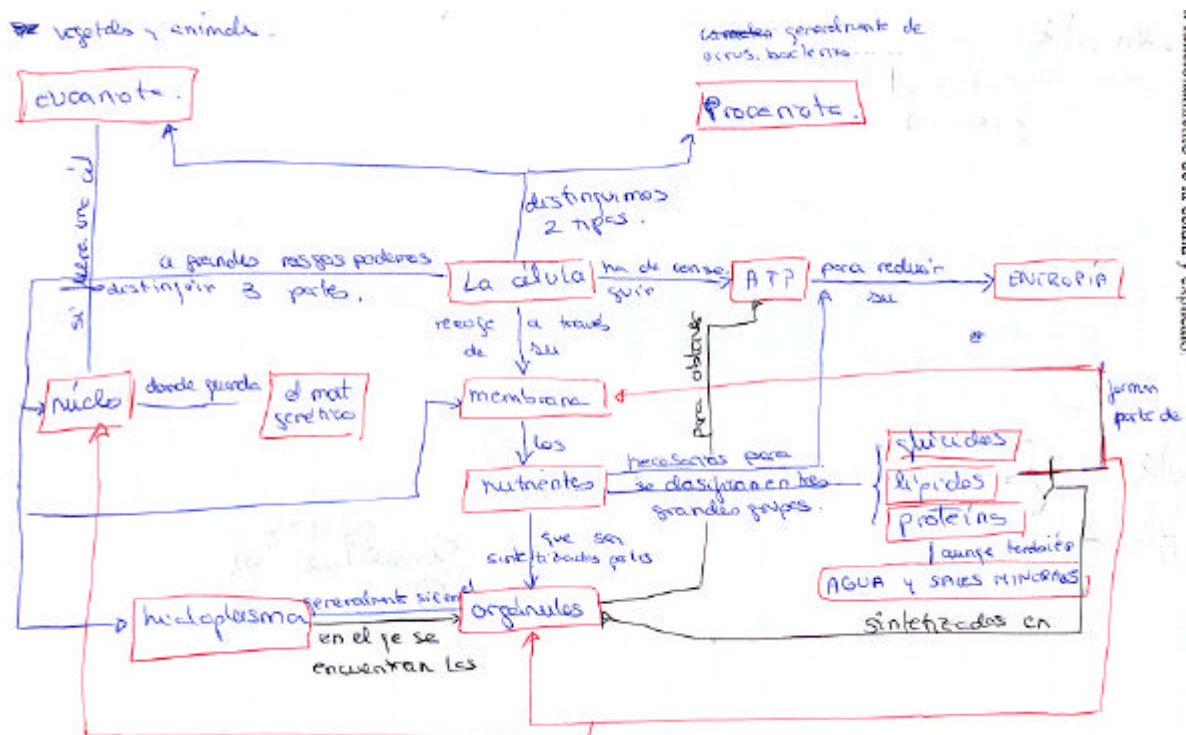 vegetales y animales.
generalmente de
virus, bacterias......
eucariota.
Procariota.
distinguimos
2 tipos.
a grandes rasgos podemos
distinguir 3 partes.
La célula
ha de conse
guir
ATP
para reducir
su
ENTROPÍA
recoge a través
de su
núcleo
donde guarda
el mat
genético
membrana
forman
parte de
para obtener
los
nutrientes
necesarios para
se clasifican en tres
grandes grupos.
glúcidos
lípidos
proteíns
aunqe también
AGUA y SALES MINERALES
que son
sintetizados por los
generalmente
orgánulos
en el qe se
encuentran los
sintetizados en